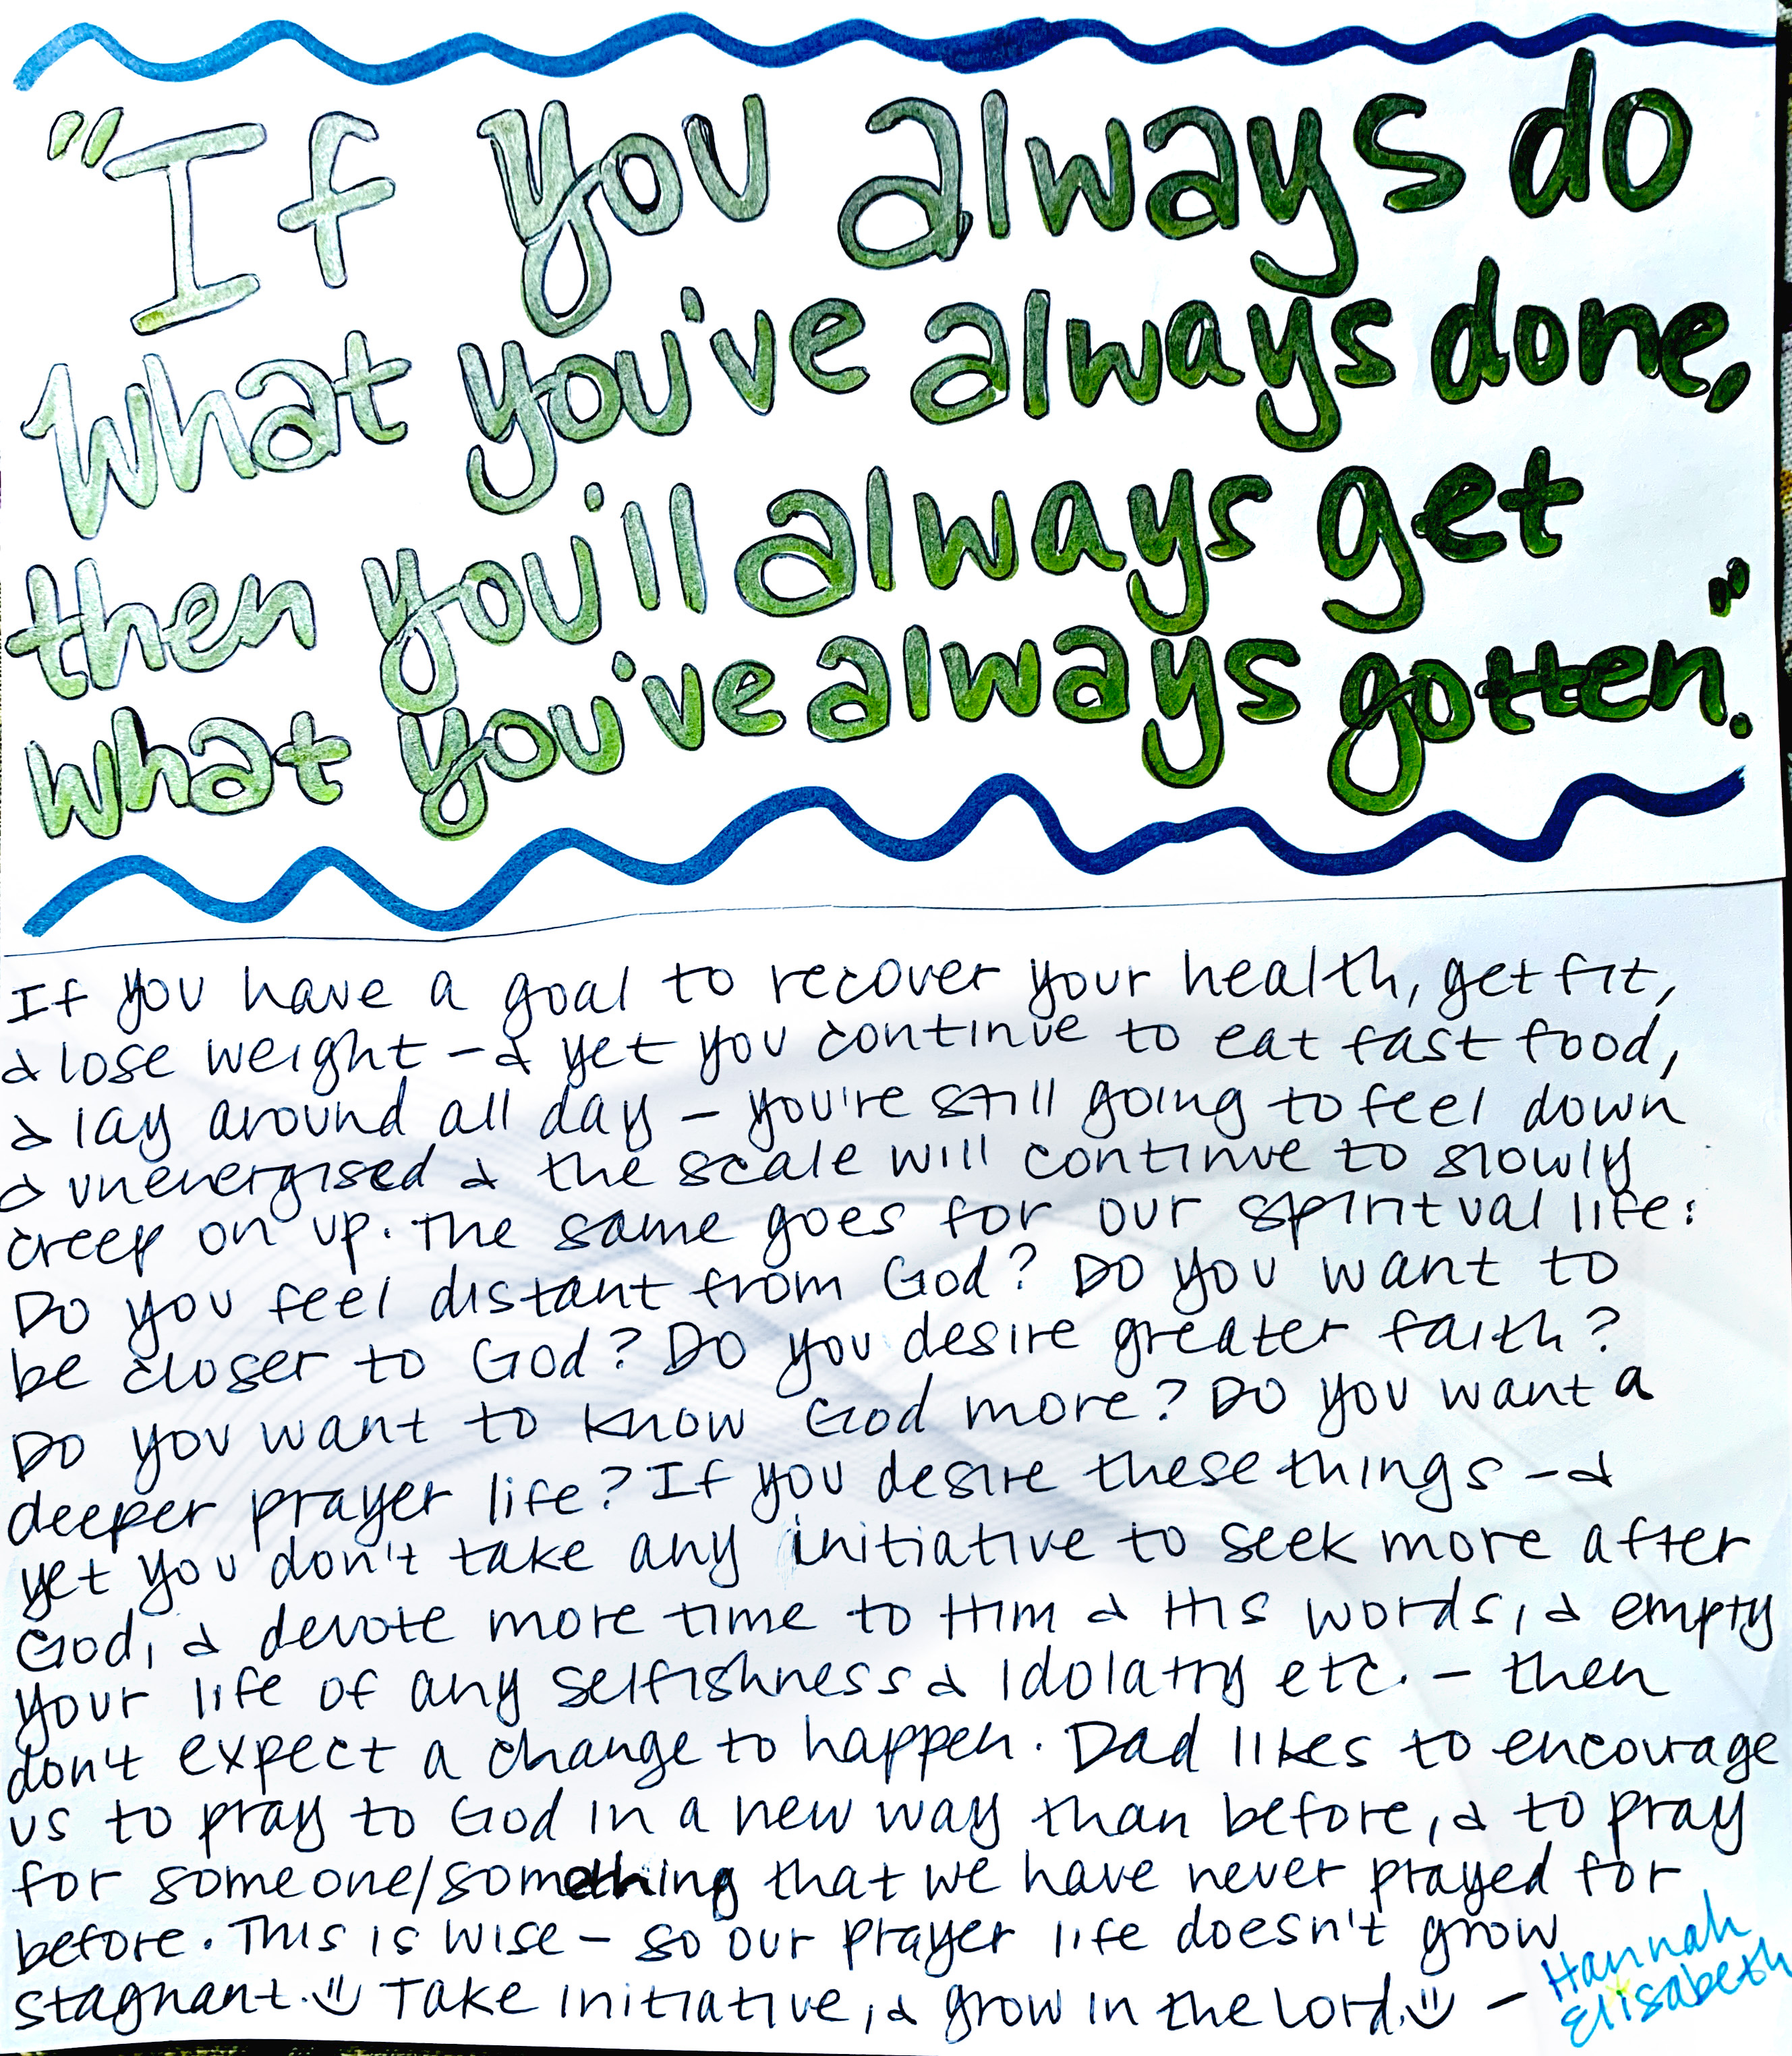 "If you always do
what you've always done,
then you'll always get
what you've always gotten."
If you have a goal to recover your health, get fit,
& lose weight - & yet you continue to eat fast food,
& lay around all day - you're still going to feel down
& unenergised & the scale will continue to slowly
creep on up. The same goes for our spiritual life:
Do you feel distant from God? Do you want to
be closer to God? Do you desire greater faith?
Do you want to know God more? Do you want a
deeper prayer life? If you desire these things - &
yet you don't take any initiative to seek more after
God, & devote more time to Him & His words, & empty
your life of any selfishness & idolatry etc. - then
don't expect a change to happen. Dad likes to encourage
us to pray to God in a new way than before, & to pray
for someone/something that we have never prayed for
before. This is wise - so our prayer life doesn't grow
stagnant. Take initiative, & grow in the Lord. - Hannah
Elisabeth